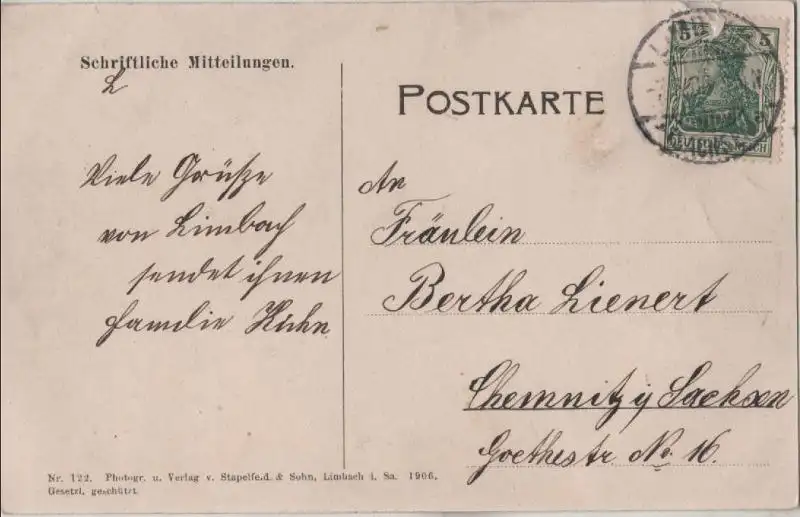 Schriftliche Mitteilungen.
POSTKARTE
5 5
Viele Grüße
von Limbach
sendet ihnen
familie Kuhn
An
Fräulein
Bertha Lienert
Chemnitz i/ Sachsen
Goethestr No. 16.
Nr. 122. Photogr. u. Verlag v. Stapelfeld & Sohn, Limbach i. Sa. 1906.
Gesetzl. geschützt.